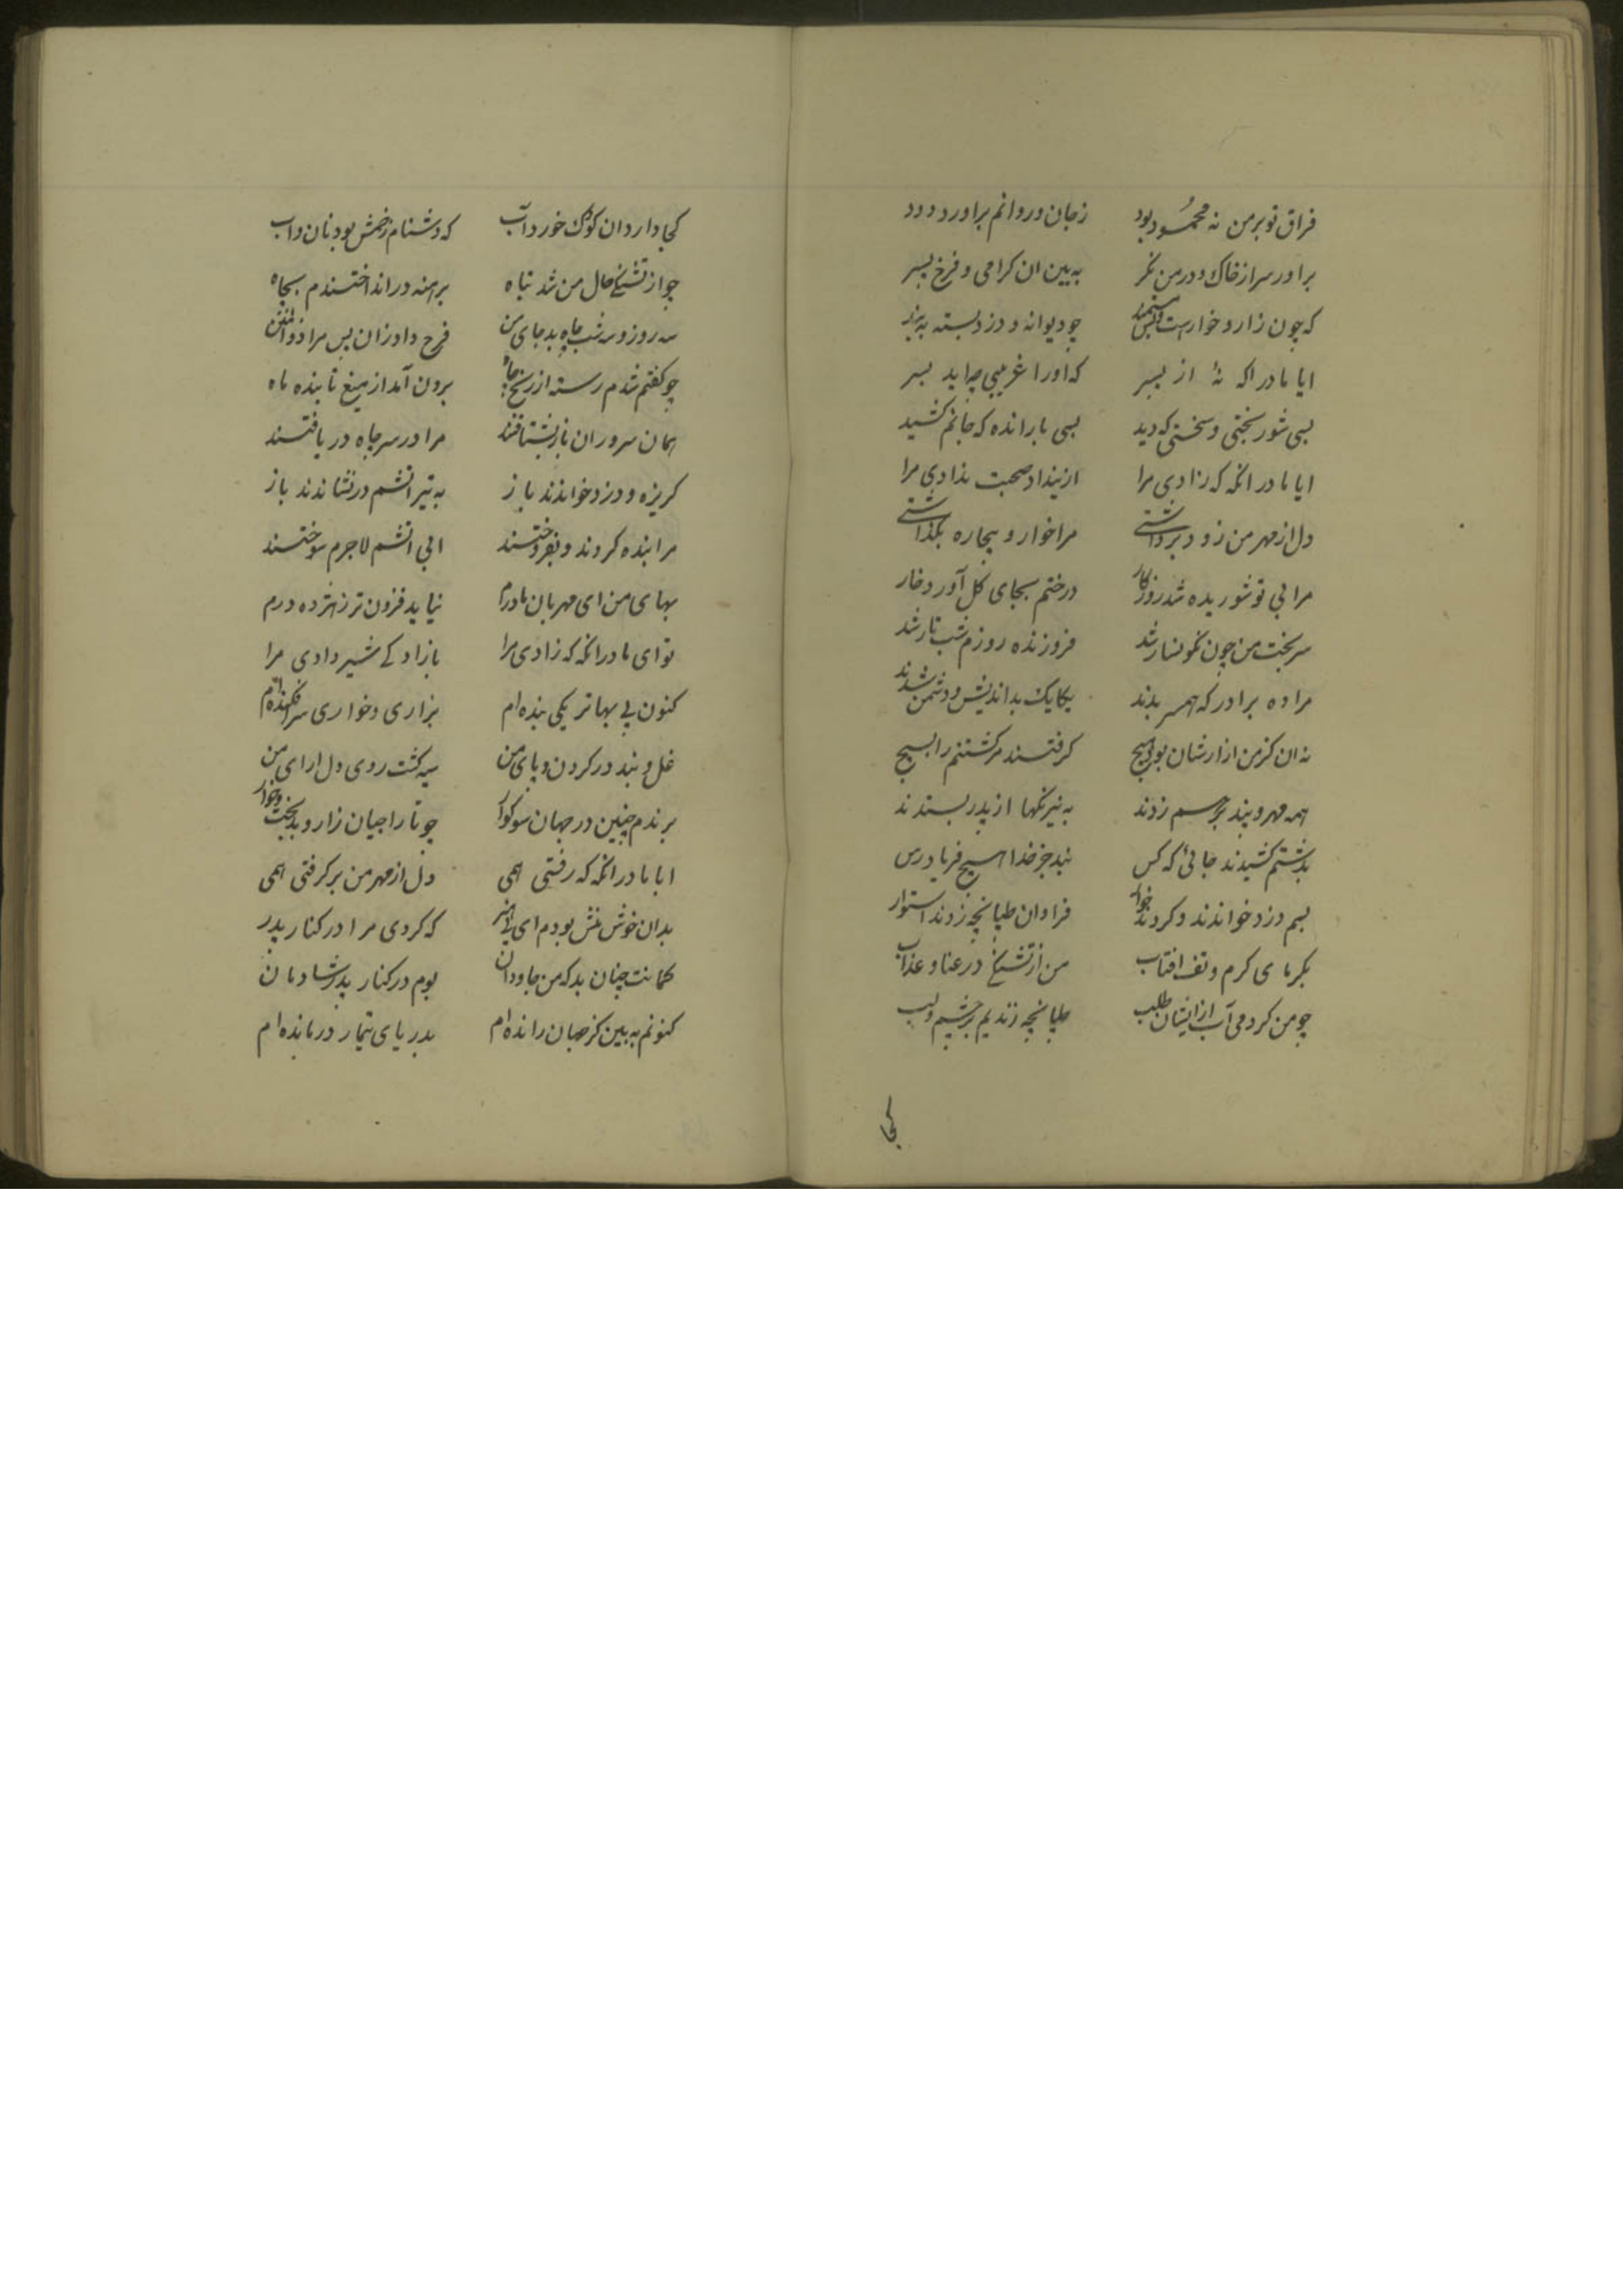 فراق تو بر من نه محمود بود زجان و روانم براورد دود
براور سر از خاک و در من نگر به بین ان کرامی و فرخ پسر
که چون زار و خوارست چو دیوانه و دزد بسته به بند
ایا مادر اکه نهٔ از پسر که او را غریبی چه اید بسر
بسی شوربختی و سختی که دید بسی بار انده که جانم کشید
ایا مادر انکه که زادی مرا ازینداد صحبت ندادی مرا
دل از مهر من زود برداشتی مرا خوار و بیچاره بگذاشتی
مرا بی تو شوریده شد روزکار درختم بجای کل آورد خار
سر بخت من چون نکونسار شد فروزنده روزم شب تار شد
مرا ده برادر که همسر بدند یکایک بد اندیش و دشمن شدند
نه ان کز من ازارشان بود هیچ کرفتند مر کشتنم را بسیج
همه مهر و پیند بر هم زدند به نیرنکها از پدر بستدند
بدشتم کشیدند جائی که کس نبد جز خدا هیچ فریادرس
بسم دزد خواندند و کردند خوار فراوان طپانچه زدند استوار
بکرمای کرم و تف افتاب من از تشنکی در عنا و عذاب
چو من کردمی آب ازایشان طلب طپانچه زندیم بر چشم و لب
کجا
کجا دارد ان کودک خورد آب که دشنام و زخمش بود نان و اب
چو از تشنکی حال من شد تباه برهنه در انداختندم بچاه
سه روز و سه شب چاه بد جای من فرح داد زان پس مرا ذوالمنن
چو کفتم شدم رسته از رنج چاه برون آمد از میغ تابنده ماه
همان سروران باز بشتافتند مرا در سر چاه دریافتند
کریزه و دزد خواندند باز به تیر اتشم درنشاندند باز
مرا بنده کردند و بفروختند ابی اتشم لاجرم سوختند
بهای من ای مهربان مادرم نیاید فزون تر ز هژده درم
تو ای مادر انکه که زادی مرا بازادکی شیر دادی مرا
کنون بی بهاتر یکی بنده ام بزاری و خواری سرافکنده ام
غل و بند در کردن و پای من سیه کشت روی دل ارای من
برندم چنین در جهان سوکوار چو تاراجیان زار و بدبخت و خوار
ایا مادر انکه که رفتی همی دل از مهر من برکرفتی همی
بدان خوش منش بودم ای که کردی مرا در کنار پدر
کمانت چنان بد که من جاودان بوم در کنار پدر شادمان
کنونم به بین کز جهان رانده ام بدریای تیمار درمانده ام